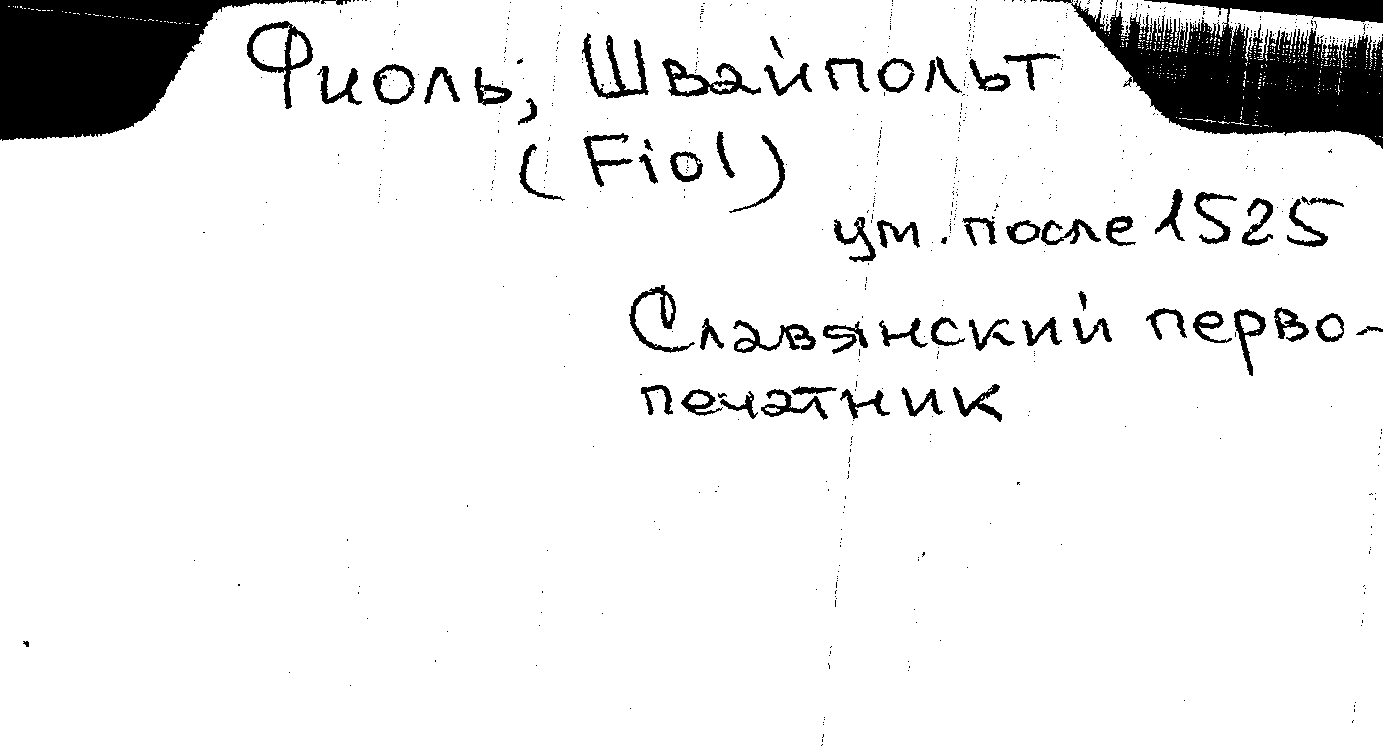 Фиоль, Швайпольт
(Fiol)
ум. после 1525
Славянский перво-
печатник